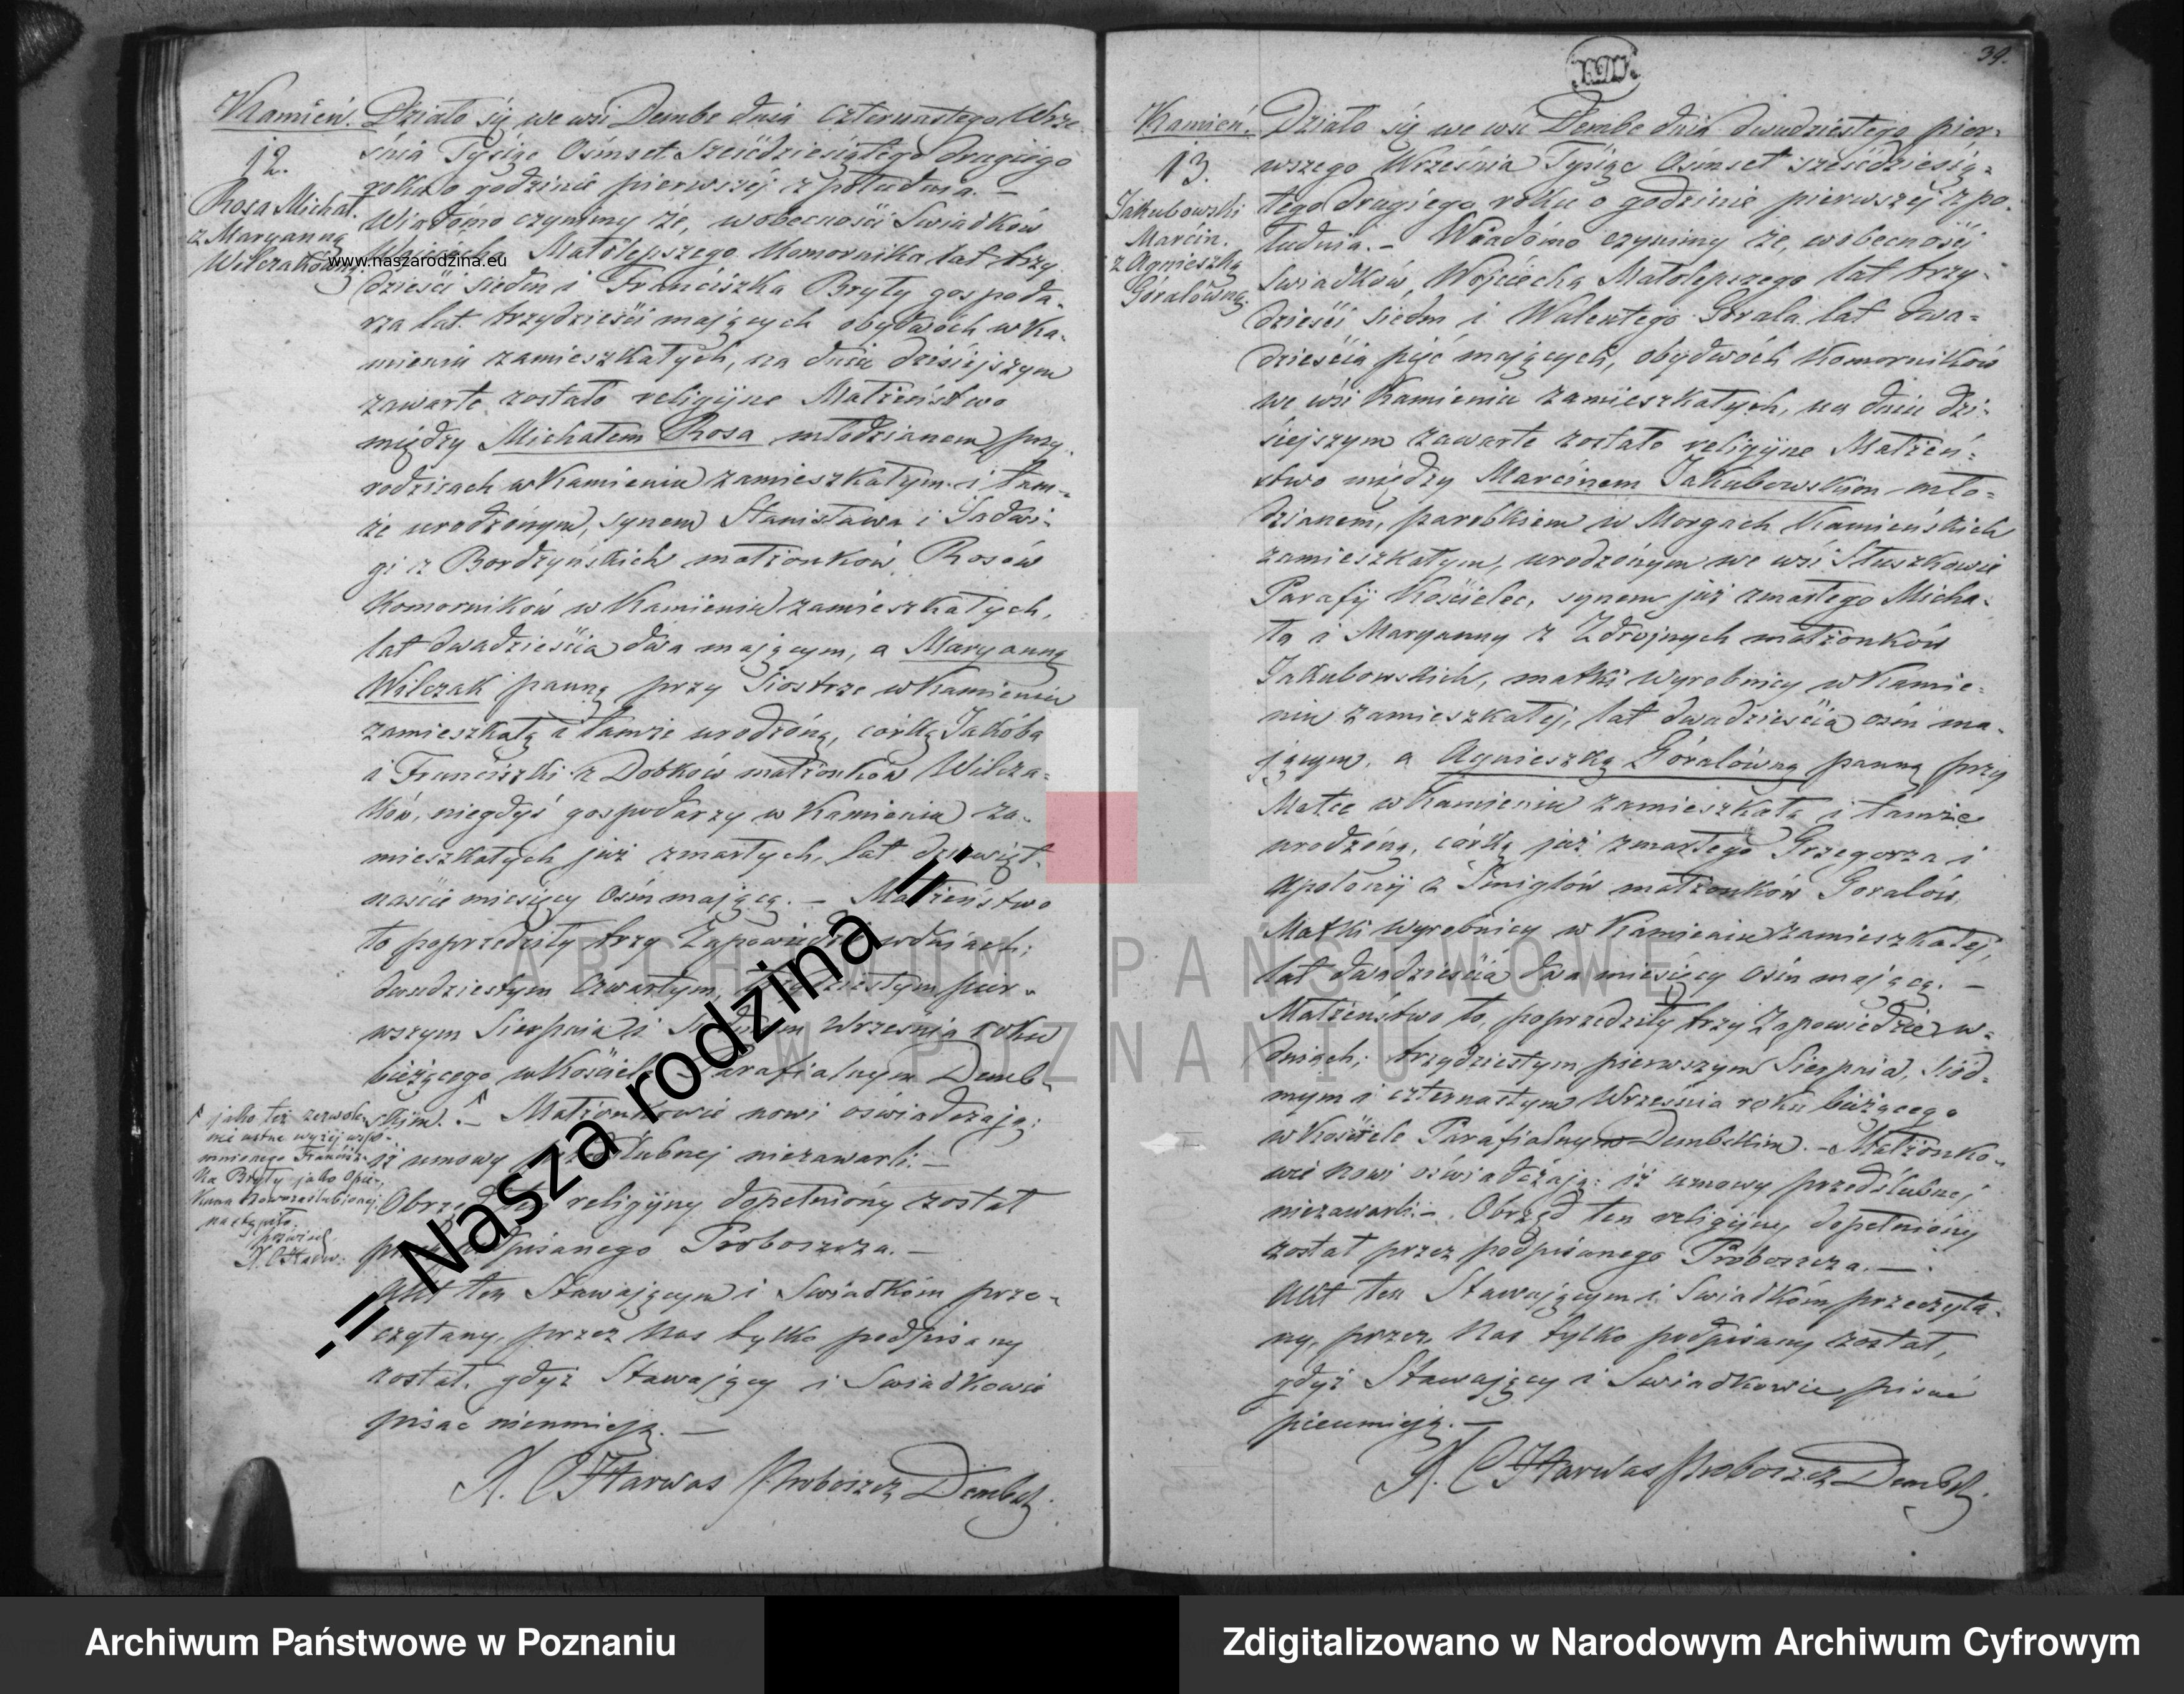 Kamień.
12.
Rosa Michał.
z Maryanną
Wilczakówną
www.naszarodzina.eu
Działo się we wsi Dembe dnia czternastego Wrze-
śnia Tysiąc Ośmset Sześćdziesiątego drugiego
roku o godzinie pierwszéj z południa. —
Wiadomo czynimy że, wobecności Swiadków
Wojciecha Małolepszego Komornika lat trzy
dzieści siedm i Franciszka Bryły gospoda-
rza lat trzydzieści mających obydwóch w Ka-
mieniu zamieszkałych, na dniu dzisiejszym
zawarte zostało religijne Małżeństwo
między Michałem Rosa młodzianem przy
rodzicach w Kamieniu zamieszkałym i tam-
że urodzonym, synem Stanisława i Jadwi-
gi z Bordzyńskich małżonków Rosów
Komorników w Kamieniu zamieszkałych,
lat dwadzieścia dwa mającym, a Maryanną
Wilczak panną przy Siostrze w Kamieniu
zamieszkałą i tamże urodzoną, córką Jakóba
i Franciszki z Dobków małżonków Wilcza-
ków, niegdyś gospodarzy w Kamieniu za-
mieszkałych już zmarłych, lat dziewięt-
naście miesięcy ośm mającą. — Małżeństwo
to poprzedziły trzy Zapowiedzie wdniach;
dwudziestym czwartym, trzydziestym pier-
wszym Sierpnia i Siódmym Września roku
bieżącego w Kościele Parafialnym Demb-
skim. — Małżonkowie nowi oświadczają:
iż umowy przedślubnej niezawarli. —
Obrzęd ten religijny dopełniony został
przez podpisanego Proboszcza. —
Akt ten Stawającym i Swiadkóm prze-
czytany, przez Nas tylko podpisany
został, gdyż Stawający i Swiadkowie
pisać nieumieją. —
X. C Harwas Proboszcz Dembsk.
jako też zezwole-
nie ustne wyżéj wspo-
mnionego Francisz-
ka Bryły jako Opie-
kuna Nowozaslubionéj
nastąpiło.
-= Nasza rodzina =-
39.
Kamień.
13.
Jakubowski
Marcin.
z Agnieszką
Góralówną.
Działo się we wsi Dembe dnia dwudziestego pier-
wszego Września Tysiąc Ośmset sześćdziesią-
tego drugiego roku o godzinie pierwszéj z po-
łudnia. — Wiadomo czynimy że, wobecności
Swiadków Wojciecha Małolepszego lat trzy-
dzieści siedm i Walentego Górala lat dwa-
dzieścia pięć mających, obydwóch Komorników
we wsi Kamieniu zamieszkałych, na dniu dzi-
siejszym zawarte zostało religijne Małżeń-
stwo między Marcinem Jakubowskim mło-
dzianem, parobkiem w Morgach Kamieńskich
zamieszkałym, urodzonym we wsi Słuszkowie
Parafij Kościelec, synem już zmarłego Micha-
ła i Maryanny z Zdrojnych małżonków
Jakubowskich, matki Wyrobnicy w Kamie-
niu zamieszkałéj, lat dwadzieścia ośm ma-
jącym, a Agnieszką Góralówną panną przy
Matce w Kamieniu zamieszkałą i tamże
urodzoną, córką już zmarłego Grzegorza i
Apolonij z Śmigłów małżonków Góralów,
Matki Wyrobnicy w Kamieniu zamieszkałéj,
lat dwadzieścia dwa miesięcy ośm mającą. —
Małżeństwo to, poprzedziły trzy Zapowiedzie w-
dniach; trzydziestym pierwszym Sierpnia, Siód-
mym i czternastym Września roku bieżącego
w Kościele Parafialnym Dembskim. — Małżonko-
wie nowi oświadczają: iż umowy przedślubnej
niezawarli. — Obrzęd ten religijny dopełniony
został przez podpisanego Proboszcza. —
Akt ten Stawającym i Swiadkóm przeczyta-
ny, przez Nas tylko podpisany został,
gdyż Stawający i Swiadkowie pisać
nieumieją. —
X. C Harwas Proboszcz Dembsk.
ARCHIWUM PAŃSTWOWE
W POZNANIU
Archiwum Państwowe w Poznaniu
Zdigitalizowano w Narodowym Archiwum Cyfrowym